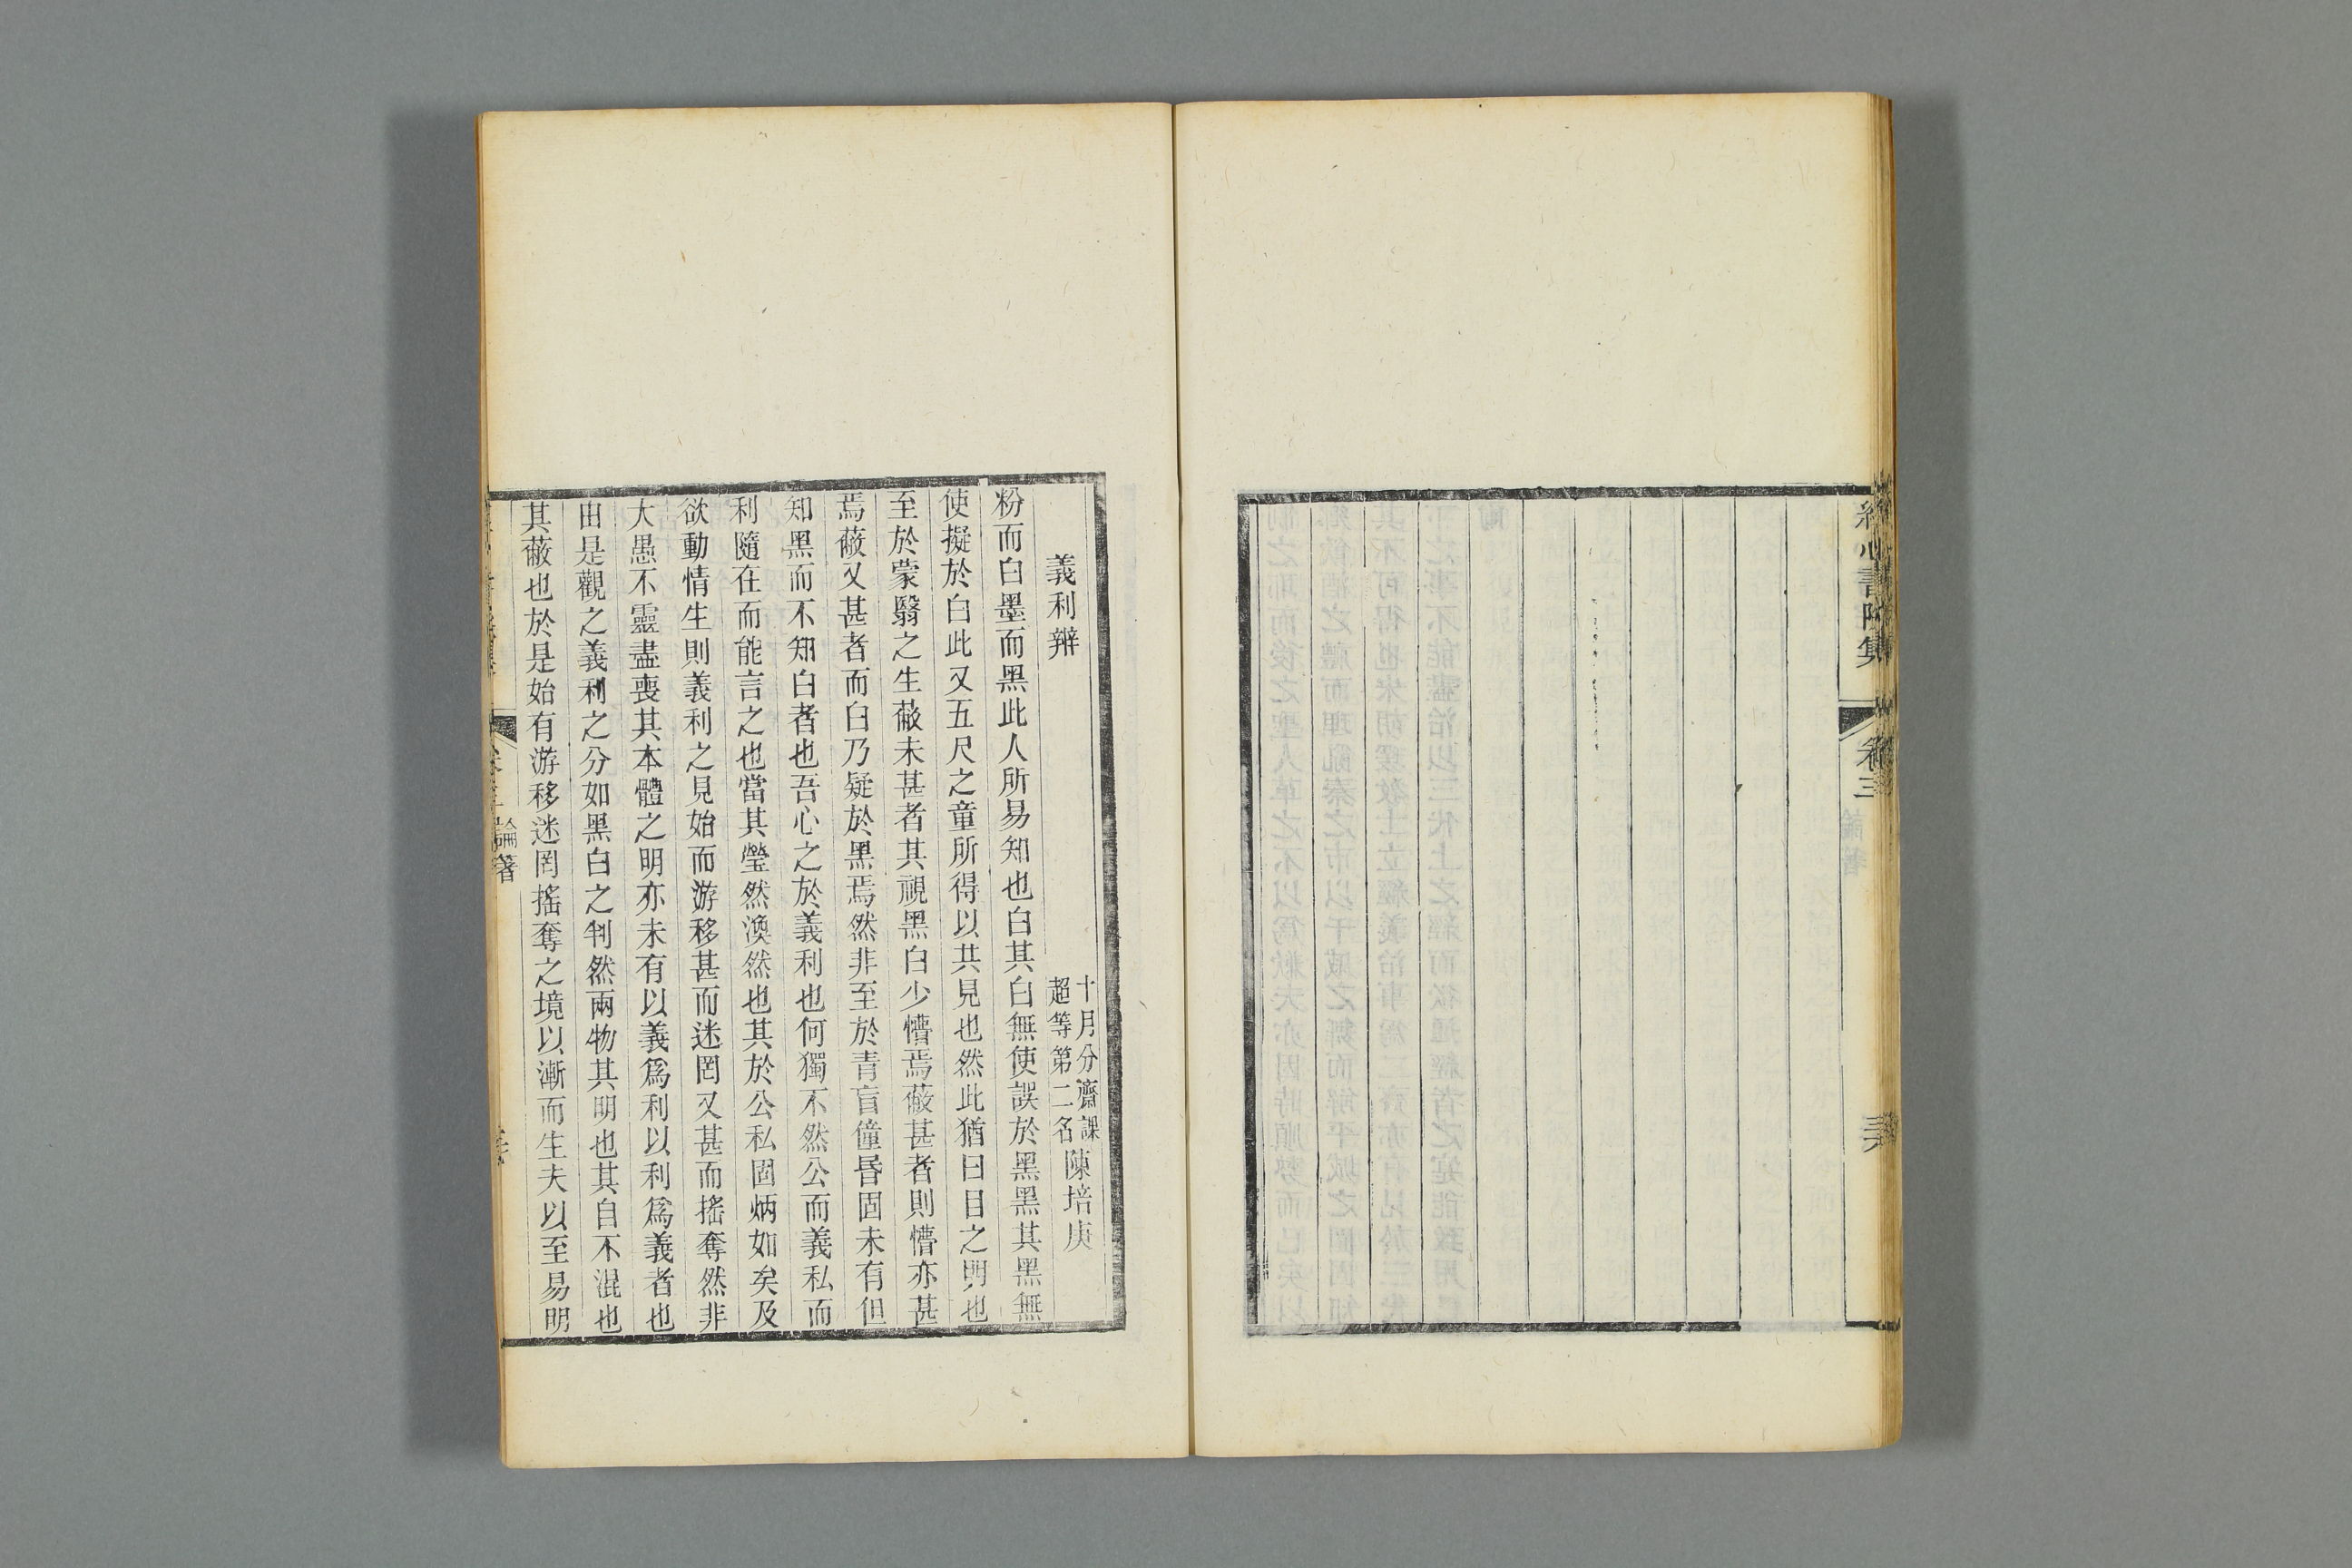 書院集
卷三
義利辨
十月分齋課
超等第二名
陳培庚
粉而白墨而黑此人所易知也白其白無使誤於黑黑其黑無
使擬於白此又五尺之童所得以共見也然此猶曰目之明也
至於蒙翳之生蔽未甚者其視黑白少懵焉蔽甚者則懵亦甚
焉蔽又甚者而白乃疑於黑焉然非至於青盲僮昏固未有但
知黑而不知白者也吾心之於義利也何獨不然公而義私而
利隨在而能言之也當其瑩然渙然也其於公私固炳如矣及
欲動情生則義利之見始而游移甚而迷罔又甚而搖奪然非
大愚不靈盡喪其本體之明亦未有以義爲利以利爲義者也
由是觀之義利之分如黑白之判然兩物其明也其自不混也
其蔽也於是始有游移迷罔搖奪之境以漸而生夫以至易明
論著